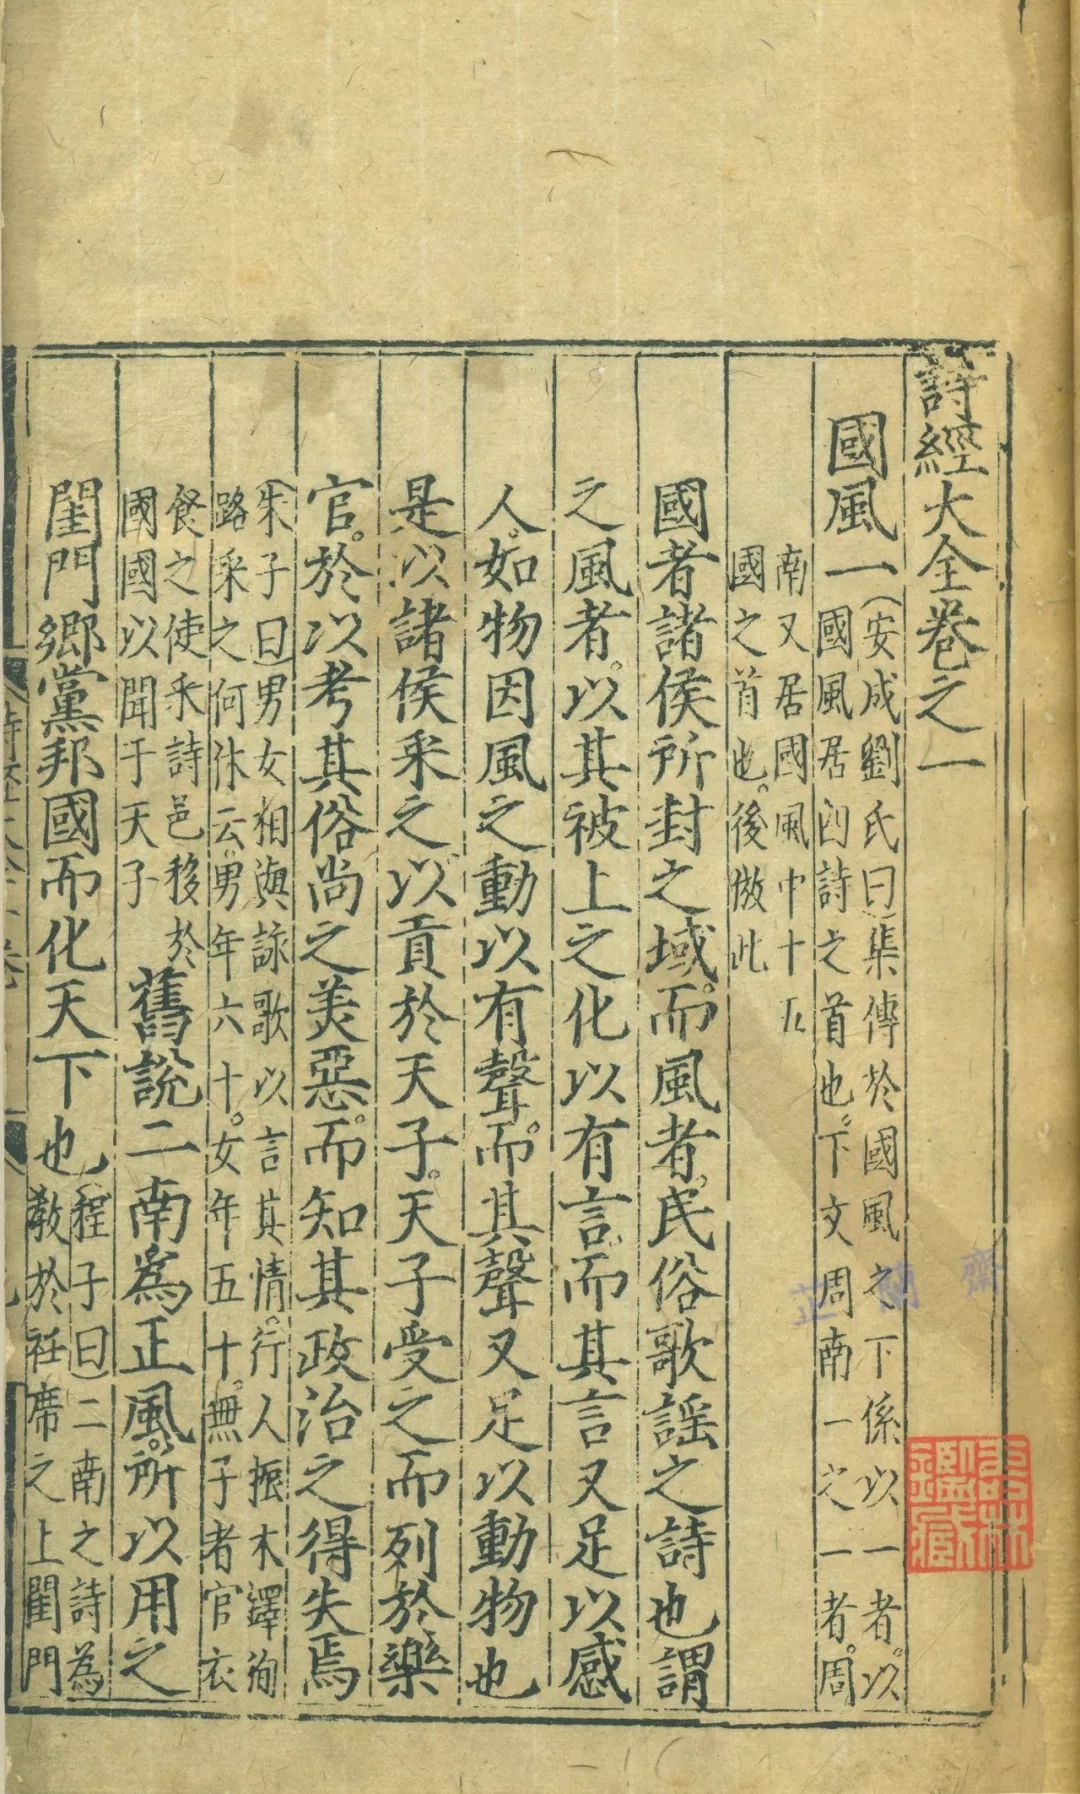 詩經大全卷之一
國風一
安成劉氏曰集傳於國風之下係以一者。以
國風居四詩之首也。下文周南一之一者。周
南又居國風中十五
國之首也。後倣此
國者諸侯所封之域。而風者。民俗歌謠之詩也謂
之風者。以其被上之化以有言。而其言又足以感
人。如物因風之動以有聲。而其聲又足以動物也
是以諸侯采之以貢於天子。天子受之而列於樂
官。於以考其俗尚之美惡。而知其政治之得失焉
朱子曰男女相與詠歌以言其情。行人振木鐸徇
路采之何休云。男年六十。女年五十。無子者官衣
食之使采詩邑移於
國國以聞于天子
舊說二南爲正風。所以用之
閨門鄉黨邦國而化天下也
程子曰二南之詩為
教於衽席之上閨門
芷蘭齋